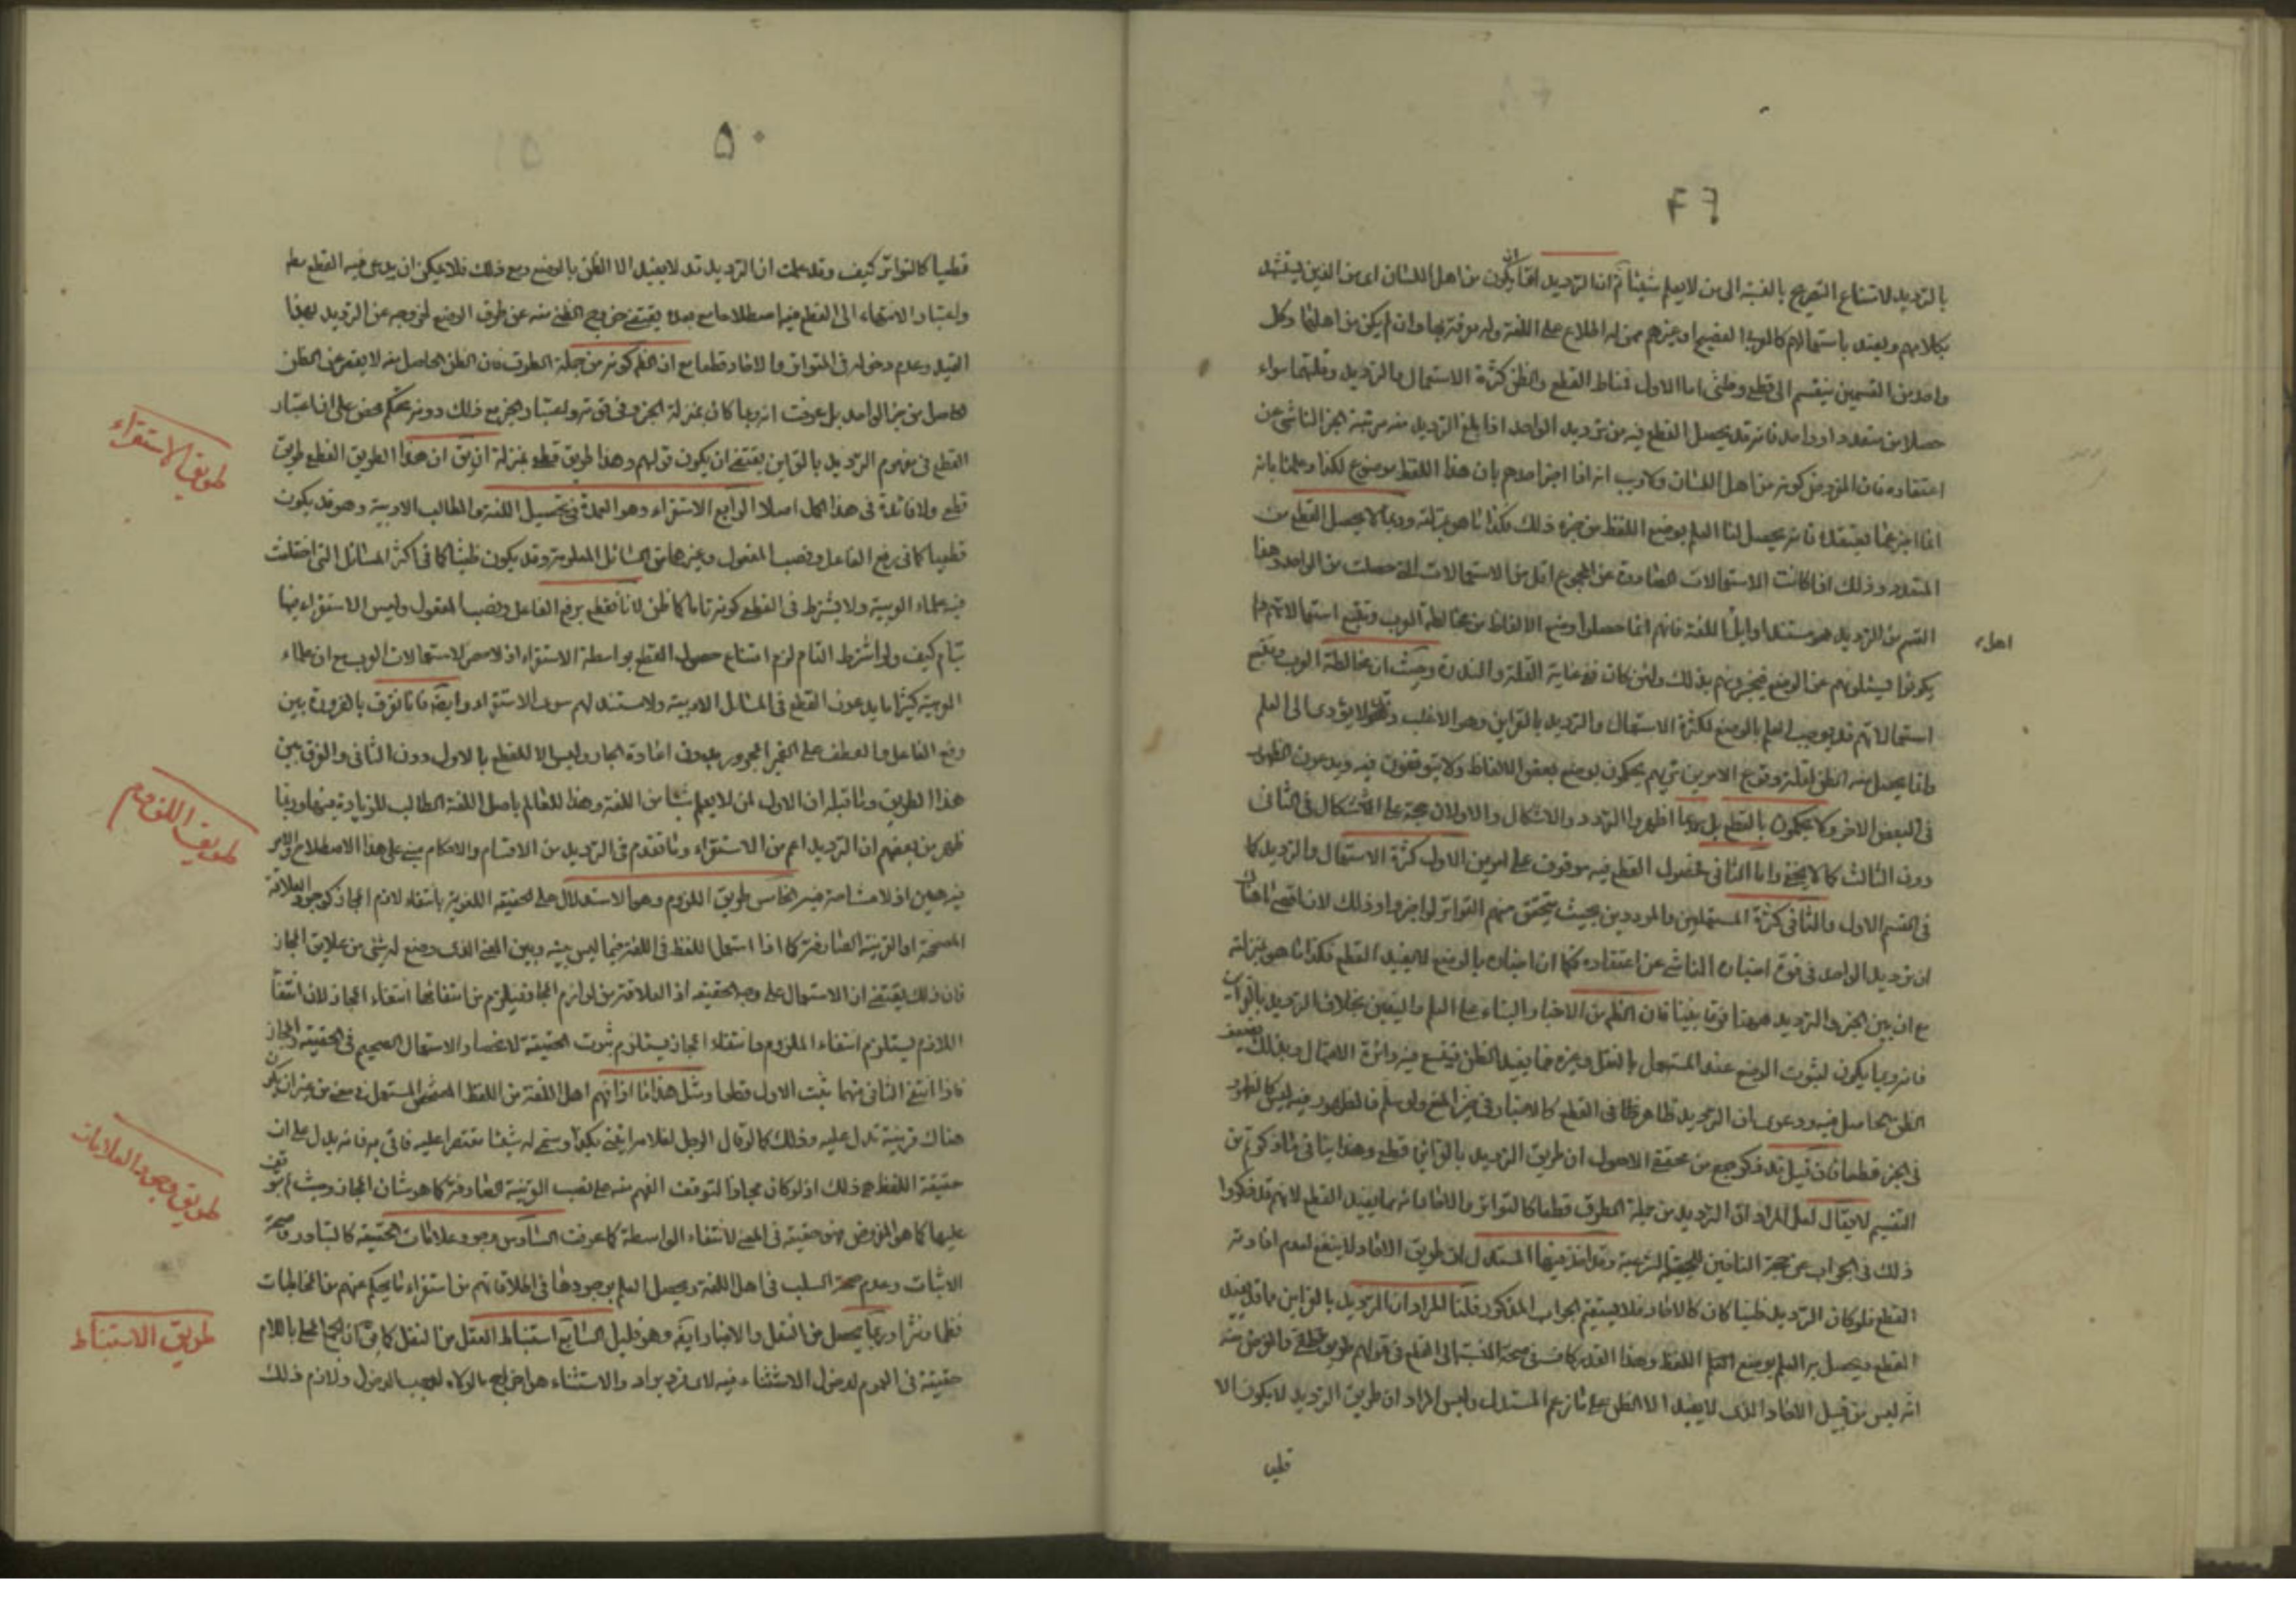 بالترديد لامتناع التصريح بالنسبة الى من لا يعلم شيئا ثم ان الترديد اما ان يكون من اهل اللسان اى من الذين يستشهد
بكلامهم ويعتد باستعمالهم كالعرب الفصيح او غيرهم ممن له اطلاع على اللغة وله معرفة بها وان لم يكن من اهلها وكل
واحد من القسمين ينقسم الى قطعى وظنى اما الاول فمناط القطع والظن كثرة الاستعمال والترديد وقلتهما سواء
حصلا من متعدد او واحد فانه قد يحصل القطع فيه من ترديد الواحد اذا بلغ الترديد منه مرتبة الجزم الناشى عن
اعتقاده فان المفروض كونه من اهل اللسان ولا ريب انه اذا اخبر احدهم بان هذا اللفظ موضوع لكذا وعلمنا بانه
انما اخبر عما يعتقده فانه يحصل لنا العلم بوضع اللفظ من خبره ذلك فكذا ما هو بمنزلته وربما لا يحصل القطع من
المتعدد وذلك اذا كانت الاستعمالات الصادرة عن المجموع اقل من الاستعمالات التى حصلت من الواحد وهذا
القسم من الترديد هو مستند اوايل اهل اللغة فانهم انما حصلوا وضع الالفاظ من مخالطة العرب وتتبع استعمالاتهم وما
يكونوا يسئلونهم عن الوضع فيخبرونهم بذلك ولئن كان ففى غاية القلة والندرة وحيث ان مخالطة العرب وتتبع
استعمالاتهم قد يوجب العلم بالوضع لكثرة الاستعمال والترديد بالقراين وهو الاغلب وقد لا يؤدى الى العلم
وانما يحصل منه الظن لقلة وقوع الامرين تريهم يحكمون بوضع بعض الالفاظ ولا يتوقفون فيه ويدعون الظهور
فى البعض الاخر ولا يحكمون بالقطع بل ربما اظهروا التردد والاشكال والاولان حجة على الاشكال فى الثانى
دون الثالث كما لا يخفى واما الثانى فحصول القطع فيه موقوف على امرين الاول كثرة الاستعمال والترديد كما
فى القسم الاول والثانى كثرة المستعملين والمرددين بحيث يتحقق منهم التواتر لو اخبروا وذلك لان اقصى ما هناك
ان ترديد الواحد فى قوة اخباره الناشى عن اعتقاده فكما ان اخباره بالوضع لا يفيد القطع فكذا ما هو بمنزلته
مع ان بين الخبر والترديد ههنا فرقا بينا فان الظاهر من الاخبار البناء على العلم واليقين بخلاف الترديد بالقراين
فانه ربما يكون لثبوت الوضع عند المستعمل بالنقل وغيره مما يفيد الظن فيتسع فيه دائرة الاحتمال وبذلك يضعف
الظن الحاصل فيه ودعوى ان الترديد ظاهر ظنا فى القطع كالاخبار فى حيز المنع ولو سلم فالظهور فيه ليس كالظهور
فى الخبر قطعا فان قيل قد ذكر جمع من محققى الاصول ان طريق الترديد بالقراين قطعى وهذا ينافى ما ذكرتم من
التقسيم لا يقال لعل المراد ان الترديد من جملة الطرق قطعا كالتواتر والاحاد لا انه مما يفيد القطع لانهم قد ذكروا
ذلك فى الجواب عن حجة النافين للحقيقة الشرعية وقد اخذ فيها المستدل ان طريق الاحاد لا ينفع لعدم افادته
القطع فلو كان الترديد ظنيا كان كالاحاد فلا يستقيم الجواب المذكور قلنا المراد ان الترديد بالقراين مما قد يفيد
القطع ويحصل به العلم بوضع اللفظ وهذا القدر كاف فى صحة النسبة الى القطع فى قولهم طريق قطعى والغرض منه
انه ليس من قبيل الاحاد الذى لا يفيد الا الظن على ما زعم المستدل وليس المراد ان طريق الترديد لا يكون الا
قطعيا
اهل
۵۰
قطعيا كالتواتر كيف وقد علمت ان الترديد قد لا يفيد الا الظن بالوضع ومع ذلك فلا يمكن ان يدعى فيه القطع مطم
واعتبار الانتهاء الى القطع فيه اصطلاحا مع بعده يقتضى خروج الظنى منه عن طرق الوضع لخروجه عن الترديد بهذا
القيد وعدم دخوله فى التواتر والاحاد قطعا مع ان الظاهر كونه من جملة الطرق فان الظن الحاصل منه لا يقصر عن الظن
الحاصل من خبر الواحد بل عرفت انه ربما كان بمنزلة الخبر وفى قوته واعتبار الخبر مع ذلك دونه تحكم محض على ان اعتبار
القطع فى مفهوم الترديد بالقراين يقتضى ان يكون قولهم وهذا طريق قطعى بمنزلة ان يق ان هذا الطريق القطع طريق
قطعى ولا فائدة فى هذا الحمل اصلا الرابع الاستقراء وهو العمدة فى تحصيل اللغة والمطالب الادبية وهو قد يكون
قطعيا كما فى رفع الفاعل ونصب المفعول وغيرهما من المسائل المعلومة وقد يكون ظنيا كما فى اكثر المسائل التى اختلفت
فيه علماء العربية ولا يشترط فى القطع كونه تاما كما ظن لانا نقطع برفع الفاعل ونصب المفعول وليس الاستقراء فيها
بتام كيف ولو اشترط التام لزم امتناع حصول القطع بواسطة الاستقراء اذ لا حصر لاستعمالات العرب مع ان علماء
العربية كثيرا ما يدعون القطع فى المسائل الادبية ولا مستند لهم سوى الاستقراء وايضا فانا نفرق بالضرورة بين
رفع الفاعل والعطف على الضمير المجرور بدون اعادة الجار وليس الا للقطع بالاول دون الثانى والفرق بين
هذا الطريق وما قبله ان الاول لمن لا يعلم شيئا من اللغة وهذا للعالم باصل اللغة الطالب للزيادة فيها وربما
ظهر من بعضهم ان الترديد اعم من الاستقراء وما تقدم فى الترديد من الاقسام والاحكام مبنى على هذا الاصطلاح والامر
فيه هين اذ لا مشاحة فيه الخامس طريق اللزوم وهو الاستدلال على الحقيقة اللغوية بانتفاء لازم المجاز كوجود العلاقة
المصححة او القرينة الصارفة كما اذا استعمل اللفظ فى اللغة فيما ليس بينه وبين المعنى الذى وضع له شئ من علايق المجاز
فان ذلك يقتضى ان الاستعمال على وجه الحقيقة اذ العلاقة من لوازم المجاز فيلزم من انتفائها انتفاء المجاز لان انتفاء
اللازم يستلزم انتفاء الملزوم وانتفاء المجاز يستلزم ثبوت الحقيقة لانحصار الاستعمال الصحيح فى الحقيقة والمجاز
فاذا انتفى الثانى منهما ثبت الاول قطعا ومثل هذا ما اذا فهم اهل اللغة من اللفظ المستعمل فى معنى من غير ان يكون
هناك قرينة تدل عليه وذلك كما لو قال الرجل لغلامه ايتنى بكذا وسمى له شيئا مقتصرا عليه فاتى به فانه يدل على ان
حقيقة اللفظ هى ذلك اذ لو كان مجازا لتوقف الفهم منه على نصب القرينة الصارفة كما هو شان المجاز وحيث لم يتوقف
عليها كما هو المفروض فهو حقيقة فى المعنى لانتفاء الواسطة كما عرفت السادس وجود علامات الحقيقة كالتبادر وصحة
الاثبات وعدم صحة السلب فى اهل اللغة ويحصل العلم بوجودها فى اطلاقاتهم من استقراء ما يحكى عنهم من المخاطبات
نظما ونثرا وربما يحصل من النقل والاخبار ايضا وهو قليل السابع استنباط العقل من النقل كما فى ان الجمع المحلى باللام
حقيقة فى العموم لدخول الاستثناء فيه لاى فرد يراد والاستثناء هو اخراج ما لولاه لوجب الدخول ولازم ذلك
طريق الاستقراء
طريق اللزوم
طريق وجود العلامات
طريق الاستنباط